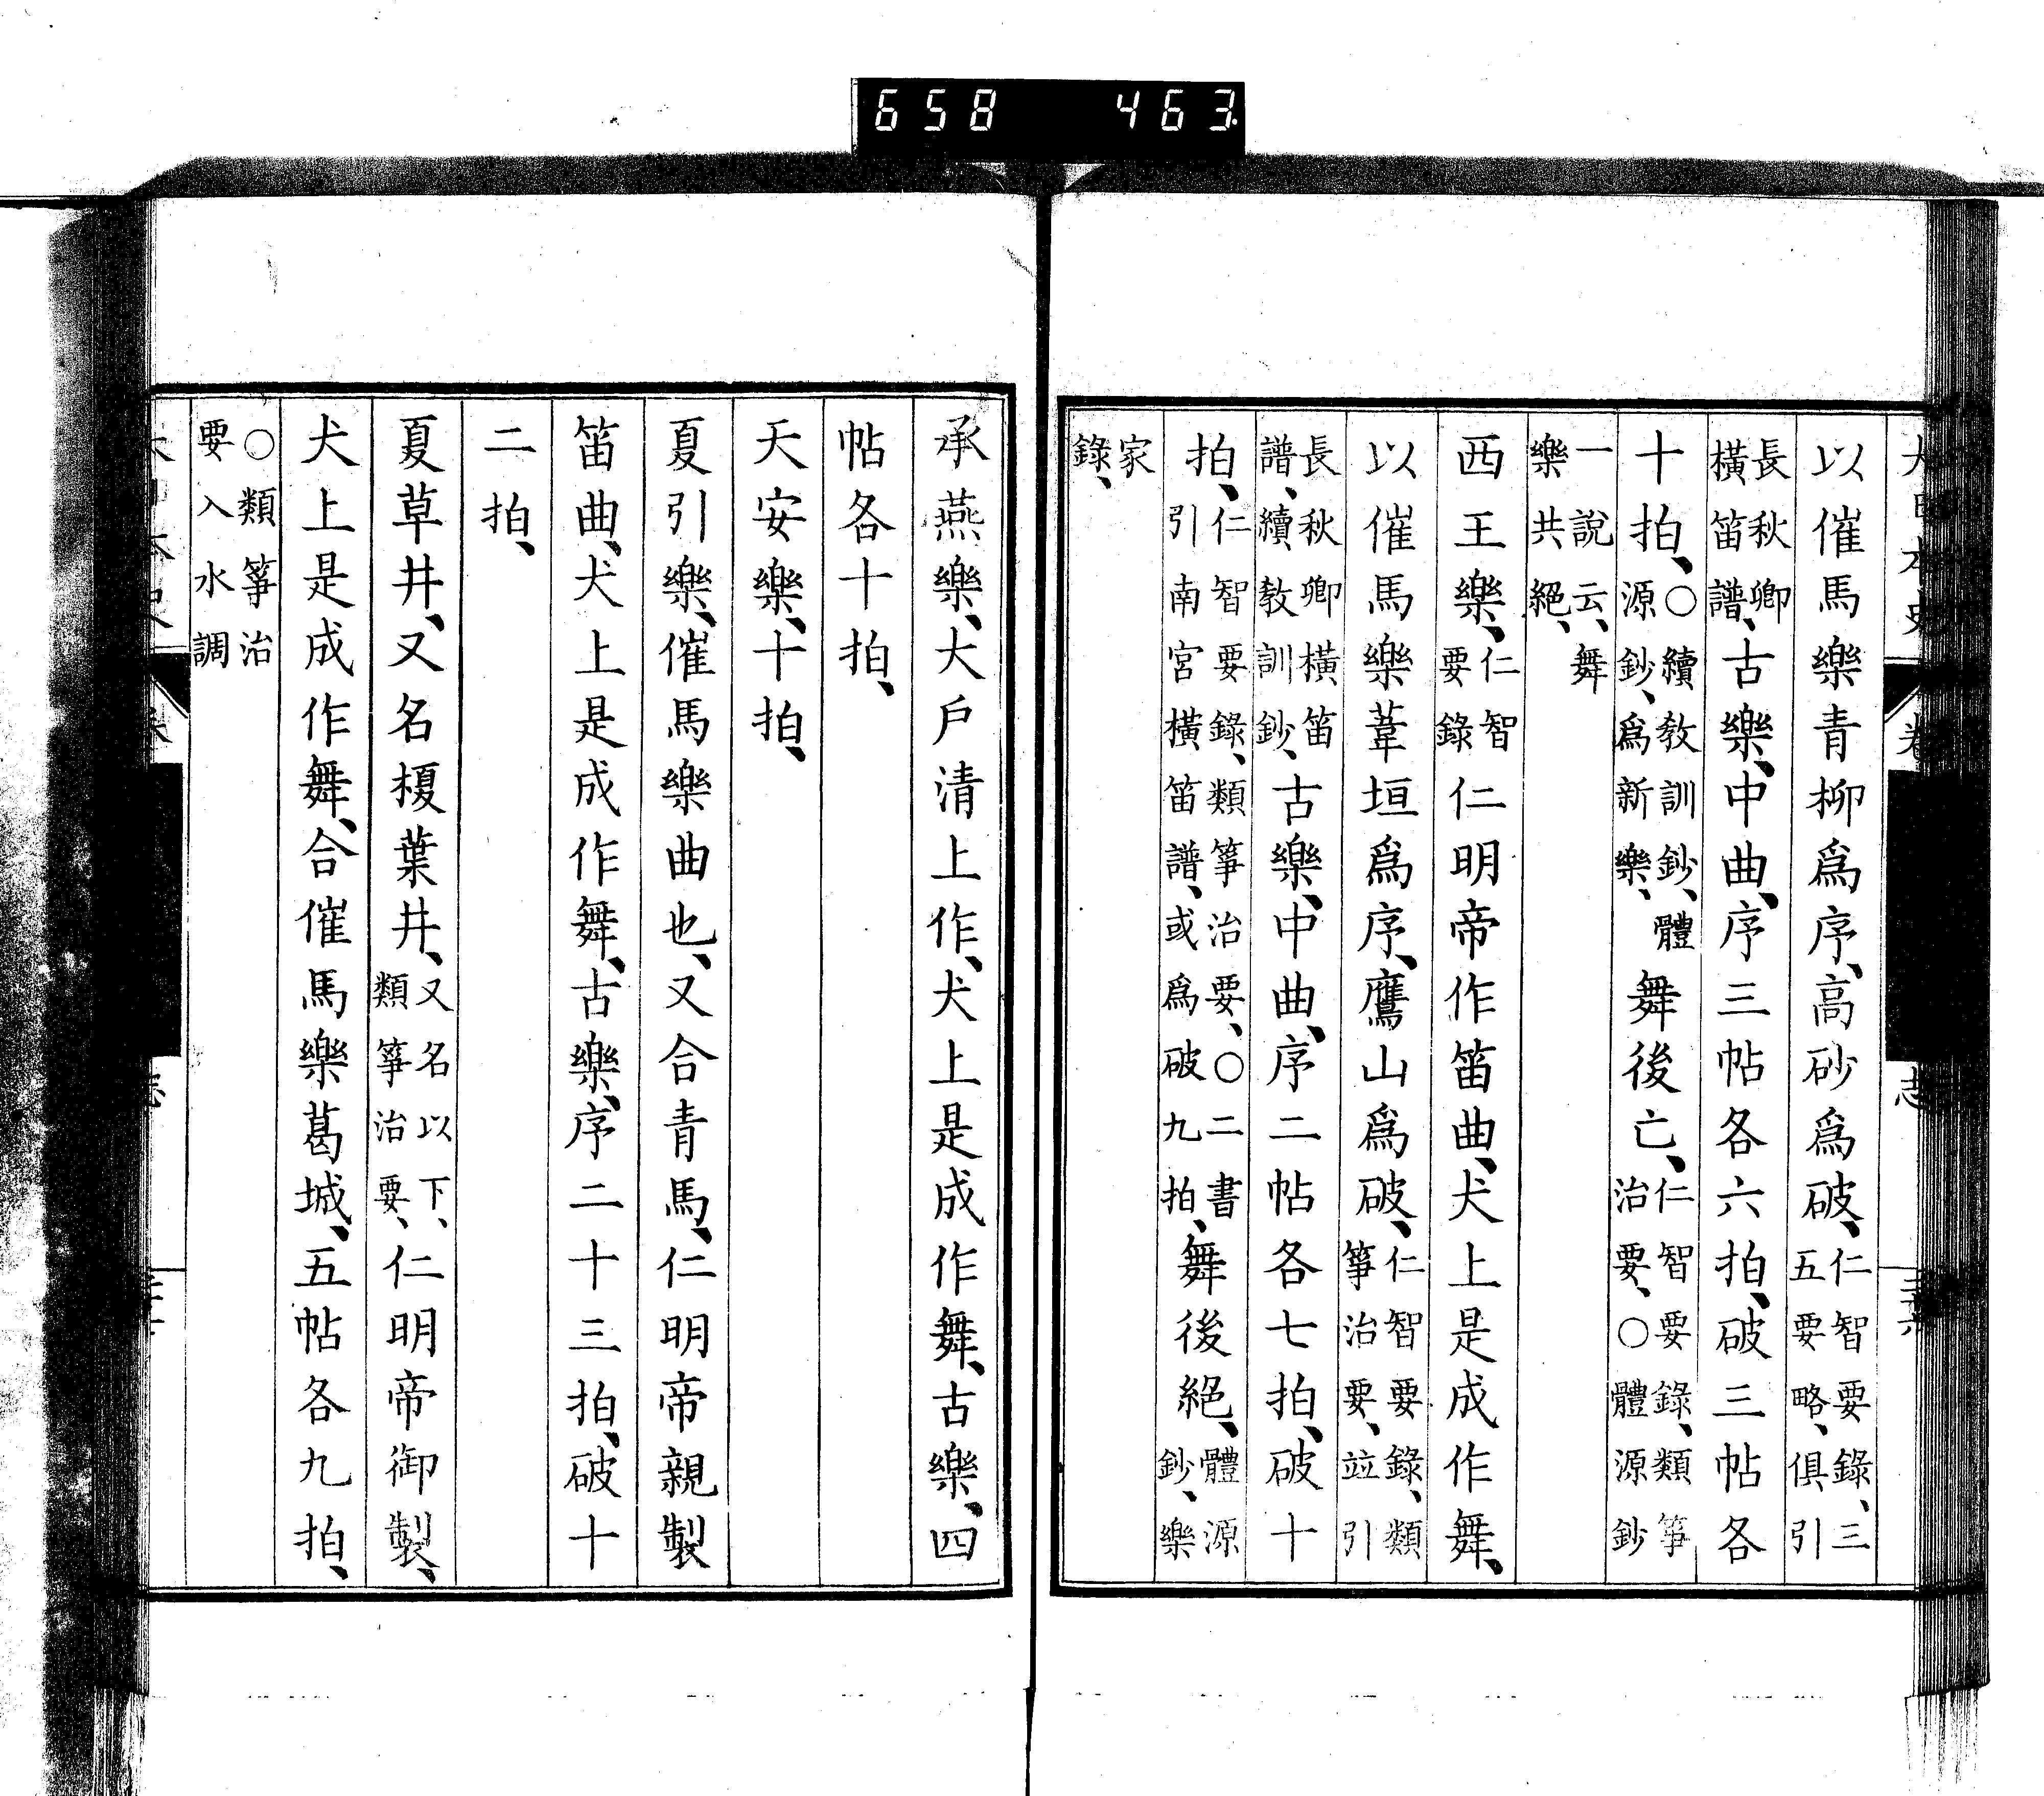 658 463
以催馬樂青柳爲序、高砂爲破、仁智要錄、三五要略、俱引
長秋卿橫笛譜、古樂、中曲、序三帖各六拍、破三帖各
十拍、○續敎訓鈔、體源鈔、爲新樂、舞後亡、仁智要錄、類箏治要、○體源鈔
一說云、舞樂共絕、
西王樂、仁智要錄仁明帝作笛曲、犬上是成作舞、
以催馬樂葦垣爲序、鷹山爲破、仁智要錄、類箏治要、竝引
長秋卿橫笛譜、續敎訓鈔、古樂、中曲、序二帖各七拍、破十
拍、仁智要錄、類箏治要、○二書引南宮橫笛譜、或爲破九拍、舞後絕、體源鈔、樂
家錄、
承燕樂、大戶清上作、犬上是成作舞、古樂、四
帖各十拍、
天安樂、十拍、
夏引樂、催馬樂曲也、又合青馬、仁明帝親製
笛曲、犬上是成作舞、古樂、序二十三拍、破十
二拍、
夏草井、又名榎葉井、又名以下、類箏治要、仁明帝御製、
犬上是成作舞、合催馬樂葛城、五帖各九拍、
○類箏治要入水調